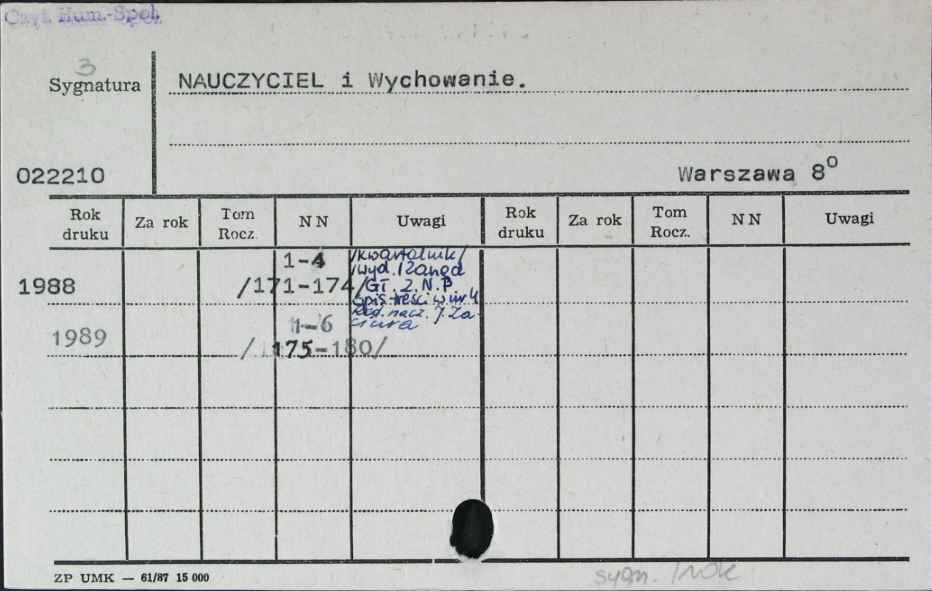 Czyt. Hum.-Społ.
3
Sygnatura
NAUCZYCIEL i Wychowanie.
022210
Warszawa 8°
Rok druku Za rok Tom Rocz. NN Uwagi Rok druku Za rok Tom Rocz. NN Uwagi
1-4
/kwartalnik/
wyd. Zarząd
1988 /171-174/
Gł. Z.N.P
spis treści w nr. 4
red. nacz. J. Za-
ciura
1-6
1989
/175-180/
ZP UMK — 61/87 15 000
sygn. 1 rok